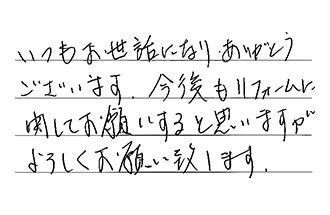 いつもお世話になり、ありがとう
ございます。今後もリフォームに
関してお願いすると思いますが
よろしくお願い致します。